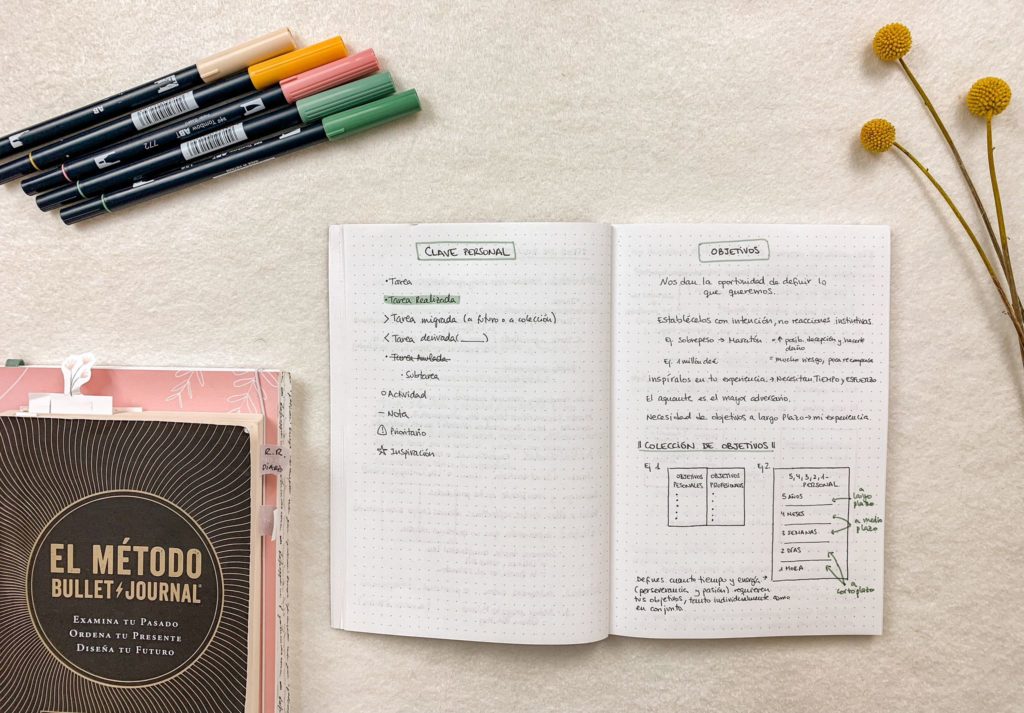 ABT
Tombow ABT
772
CLAVE PERSONAL
• Tarea
• Tarea Realizada
> Tarea migrada (a futuro o a colección)
< Tarea derivada (____)
• Tarea Anulada
• Subtarea
o Actividad
- Nota
! Prioritario
☆ Inspiración
OBJETIVOS
Nos dan la oportunidad de definir lo
que queremos.
Establécelos con intención, no reacciones instintivas.
Ej. Sobrepeso → Maratón = ↑ posib. decepción y hacerte
daño
Ej. 1 millón de € = mucho riesgo, poca recompensa
inspíralos en tu experiencia. → Necesitan TIEMPO y ESFUERZO
El aguante es el mayor adversario.
Necesidad de objetivos a largo plazo → mi experiencia.
|| COLECCIÓN DE OBJETIVOS ||
Ej. 1
OBJETIVOS
PERSONALES
OBJETIVOS
PROFESIONALES
Ej. 2
5, 4, 3, 2, 1 -
PERSONAL
5 AÑOS
4 MESES
3 SEMANAS
2 DÍAS
1 HORA
a
largo
plazo
a medio
plazo
a
corto plazo
Defines cuanto tiempo y energía →
(perseverancia y pasión) requieren
tus objetivos, tanto individualmente como
en conjunto.
R.R.
DIARIO
EL MÉTODO
BULLET JOURNAL
EXAMINA TU PASADO
ORDENA TU PRESENTE
DISEÑA TU FUTURO